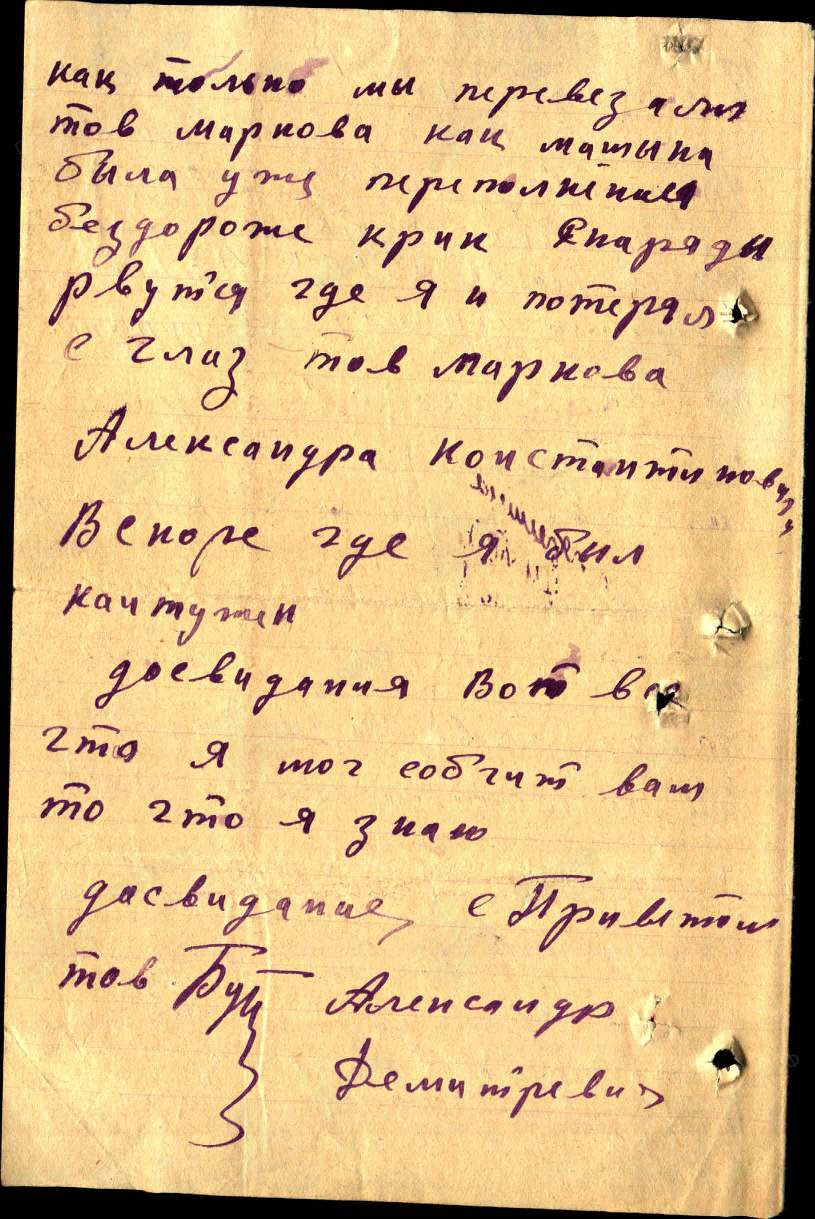 как только мы перевезали
тов маркова как машына
была уже переполненая
бездороже крик Снаряды
рвутся где я и потерял
с глаз тов маркова
Александра Константиновича
Вскоре где я был
кантужен
досвидания Вот все
что я мог собчит вам
то что я знаю
досвидание, с Приветом
тов Буц Александр
Демитревич